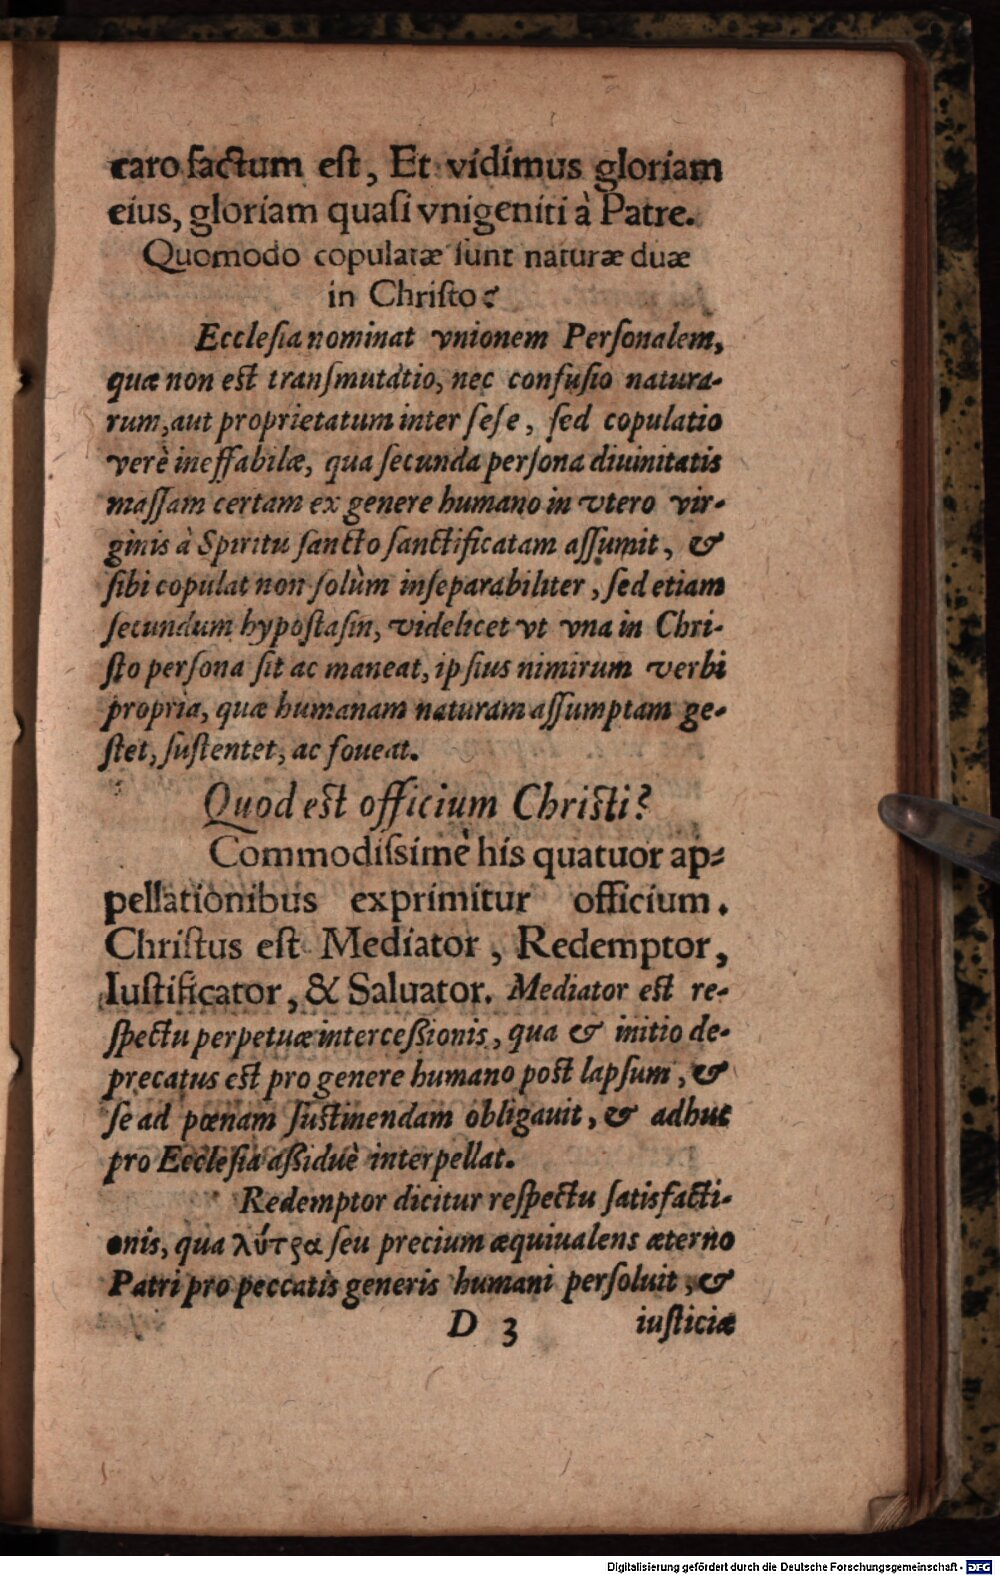 caro factum eſt, Et vidimus gloriam
eius, gloriam quaſi vnigeniti à Patre.
Quomodo copulatæ ſunt naturæ duæ
in Chriſto?
Eccleſia nominat vnionem Perſonalem,
quæ non est tranſmutatio, nec confuſio natura-
rum, aut proprietatum inter ſeſe, ſed copulatio
verè ineffabilæ, qua ſecunda perſona diuinitatis
maſſam certam ex genere humano in vtero vir-
ginis à Spiritu ſancto ſanctificatam aſſumit, &
ſibi copulat non ſolùm inſeparabiliter, ſed etiam
ſecundum hypoſtaſin, videlicet vt vna in Chri-
ſto perſona ſit ac maneat, ipſius nimirum verbi
propria, quæ humanam naturam aſſumptam ge-
ſtet, ſuſtentet, ac foueat.
Quod est officium Chriſti?
Commodiſsimè his quatuor ap-
pellationibus exprimitur officium.
Chriſtus eſt Mediator, Redemptor,
Iuſtificator, & Saluator. Mediator est re-
ſpectu perpetuæ interceßionis, qua & initio de-
precatus est pro genere humano post lapſum, &
ſe ad pœnam ſuſtinendam obligauit, & adhuc
pro Eccleſia aßiduè interpellat.
Redemptor dicitur reſpectu ſatisfacti-
onis, qua λύτρα ſeu precium æquiualens æterno
Patri pro peccatis generis humani perſoluit, &
D 3 iuſticiæ
Digitalisierung gefördert durch die Deutsche Forschungsgemeinschaft - DFG